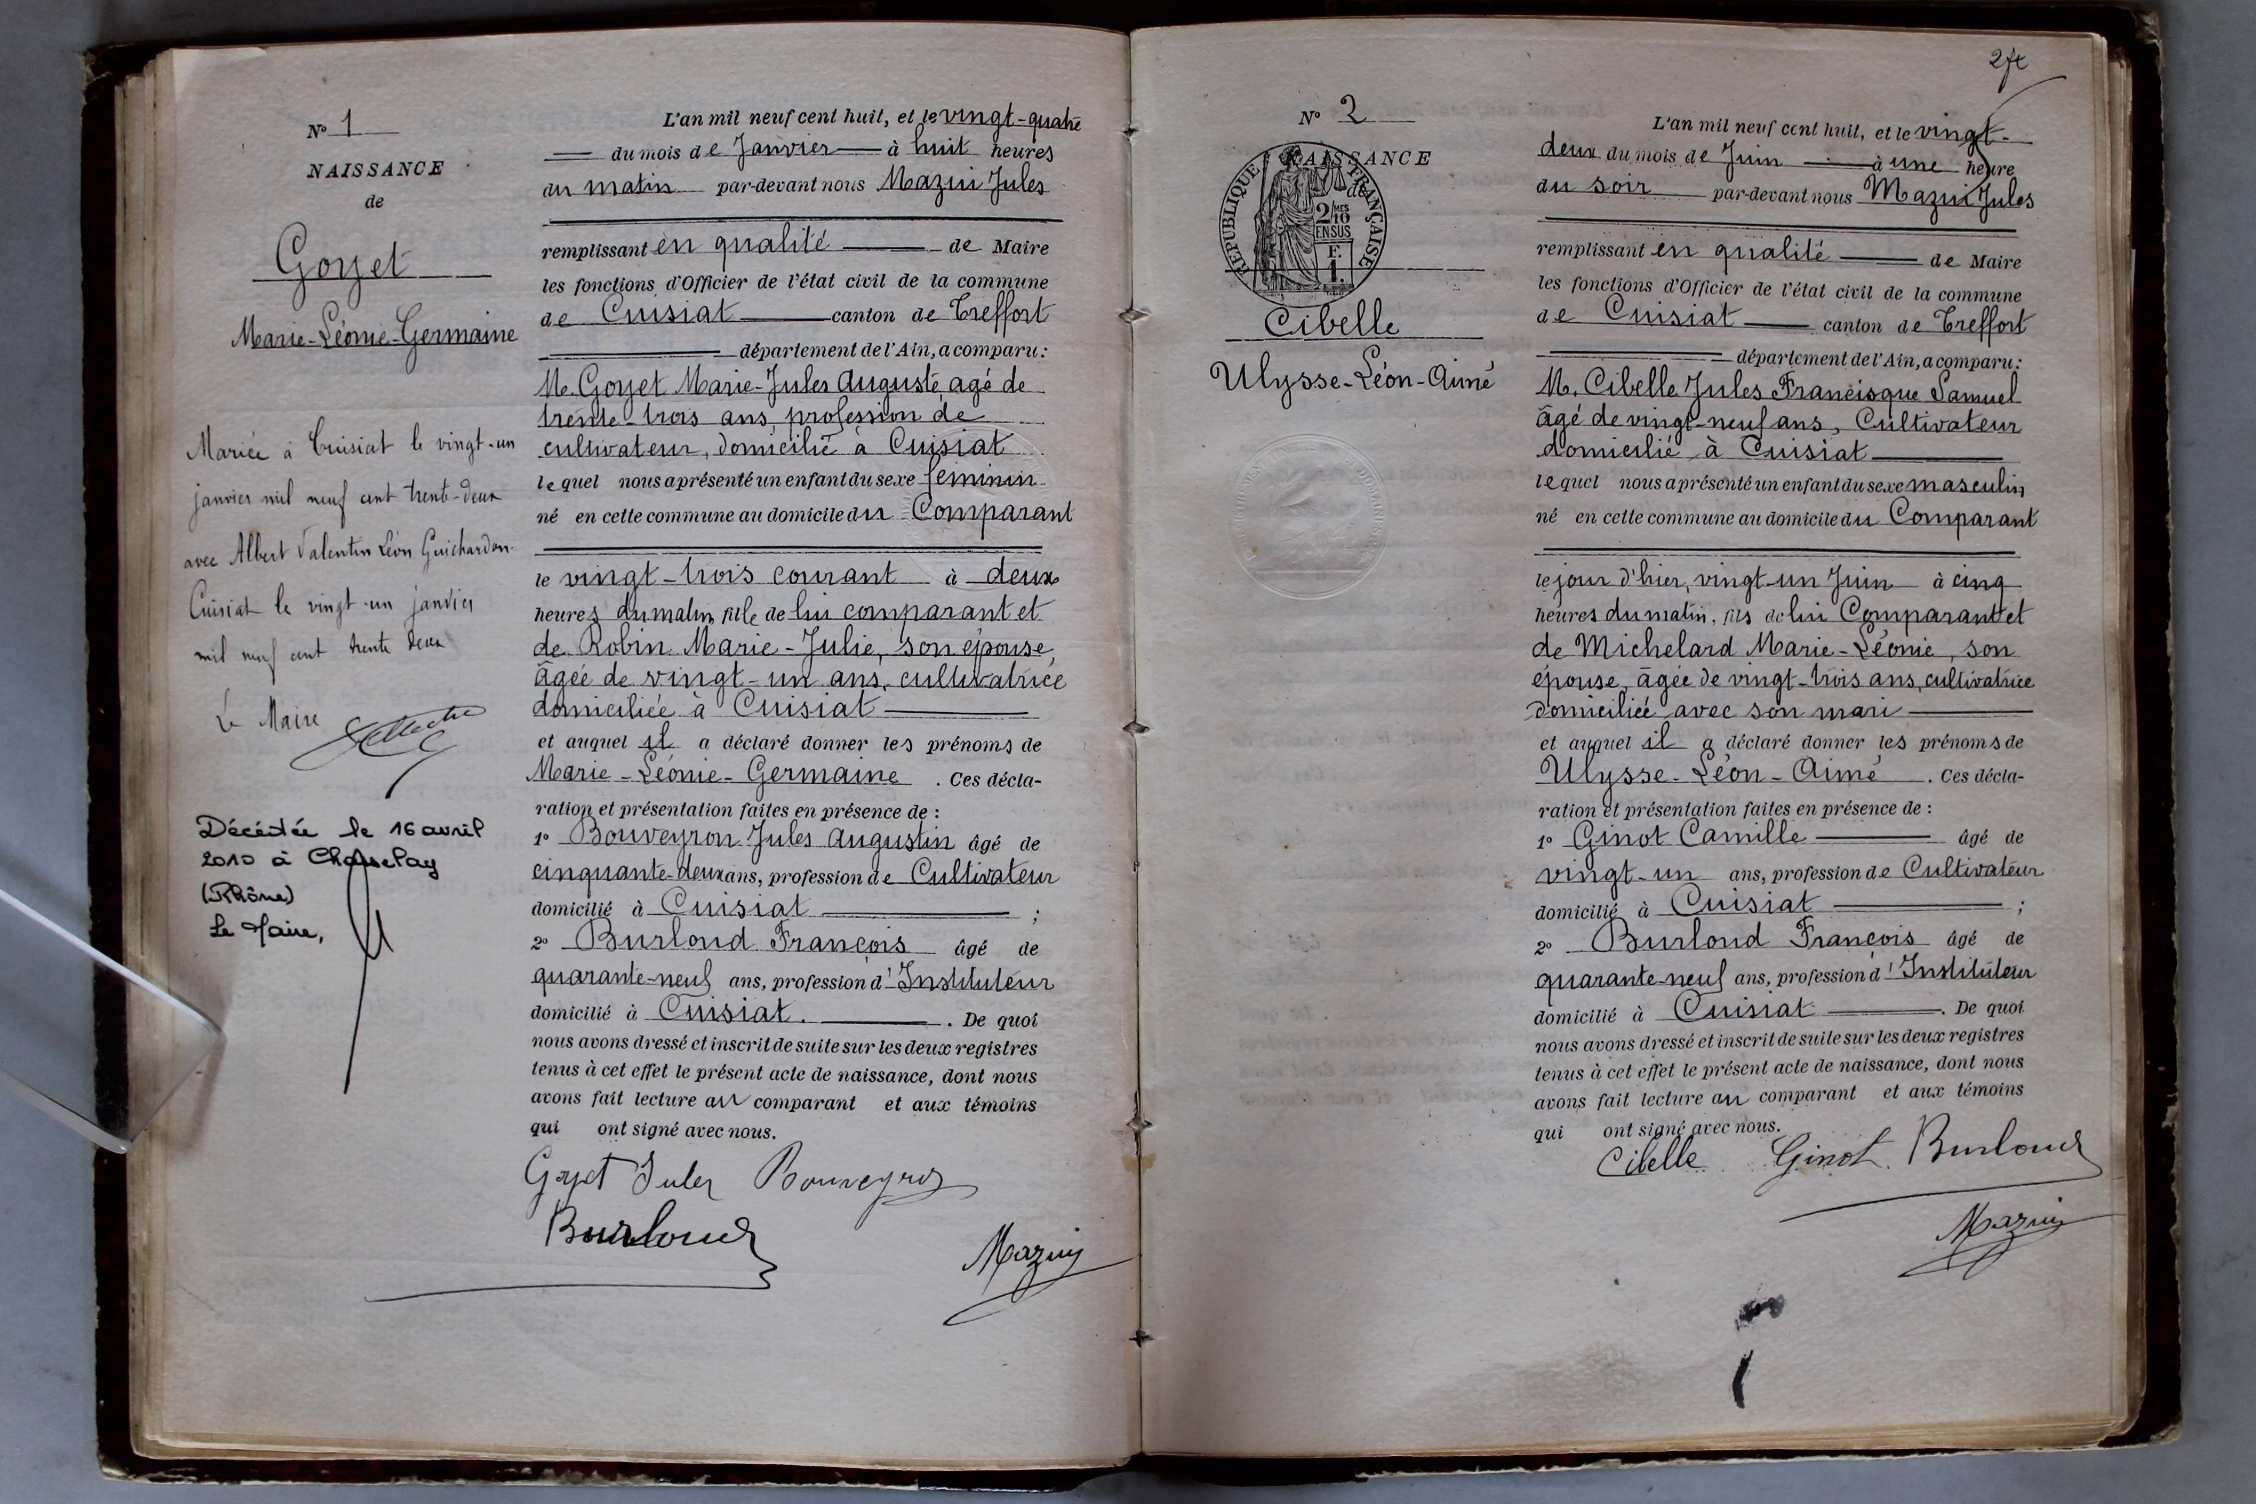 N° 1
NAISSANCE
de
Goyet
Marie-Léonie-Germaine
Mariée à Cuisiat le vingt-un
janvier mil neuf cent trente-deux
avec Albert Valentin Léon Guichardon
Cuisiat le vingt-un janvier
mil neuf cent trente deux
Le Maire
Décédée le 16 avril
2010 à Chasselay
(Rhône)
Le Maire,
L'an mil neuf cent huit, et le vingt-quatre
du mois de Janvier à huit heures
du matin par-devant nous Mazui Jules
remplissant en qualité de Maire
les fonctions d'Officier de l'état civil de la commune
de Cuisiat canton de Treffort
département de l'Ain, a comparu:
M. Goyet Marie-Jules Auguste, agé de
trente-trois ans, profession de
cultivateur, domicilié à Cuisiat
lequel nous a présenté un enfant du sexe féminin
né en cette commune au domicile du Comparant
le vingt-trois courant à deux
heures du matin, fille de lui comparant et
de Robin Marie-Julie, son épouse,
âgée de vingt-un ans, cultivatrice
domiciliée à Cuisiat
et auquel il a déclaré donner les prénoms de
Marie-Léonie-Germaine . Ces décla-
ration et présentation faites en présence de :
1° Bouveyron Jules Augustin âgé de
cinquante-deux ans, profession de Cultivateur
domicilié à Cuisiat ;
2° Burloud François âgé de
quarante-neuf ans, profession d'Instituteur
domicilié à Cuisiat. . De quoi
nous avons dressé et inscrit de suite sur les deux registres
tenus à cet effet le présent acte de naissance, dont nous
avons fait lecture au comparant et aux témoins
qui ont signé avec nous.
Goyet Jules Bouveyron
Burloud
Mazuy
2 ft
N° 2
NAISSANCE
de
REPUBLIQUE FRANÇAISE
2/10 MES
EN SUS
F.
1.
Cibelle
Ulysse-Léon-Aimé
L'an mil neuf cent huit, et le vingt-
deux du mois de Juin à une heure
du soir par-devant nous Mazui Jules
remplissant en qualité de Maire
les fonctions d'Officier de l'état civil de la commune
de Cuisiat canton de Treffort
département de l'Ain, a comparu:
M. Cibelle Jules Francisque Samuel
âgé de vingt-neuf ans, Cultivateur
domicilié à Cuisiat
lequel nous a présenté un enfant du sexe masculin
né en cette commune au domicile du Comparant
le jour d'hier, vingt-un Juin à cinq
heures du matin, fils de lui Comparant et
de Michelard Marie-Léonie, son
épouse, âgée de vingt-trois ans, cultivatrice
domiciliée avec son mari
et auquel il a déclaré donner les prénoms de
Ulysse-Léon-Aimé . Ces décla-
ration et présentation faites en présence de :
1° Ginot Camille âgé de
vingt-un ans, profession de Cultivateur
domicilié à Cuisiat ;
2° Burloud François âgé de
quarante-neuf ans, profession d'Instituteur
domicilié à Cuisiat . De quoi
nous avons dressé et inscrit de suite sur les deux registres
tenus à cet effet le présent acte de naissance, dont nous
avons fait lecture au comparant et aux témoins
qui ont signé avec nous.
Cibelle Ginot Burloud
Mazuy